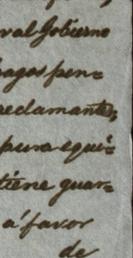 val Gobierno
pagos pen=
reclamante,
pura equi=
tiene guar=
á favor
de